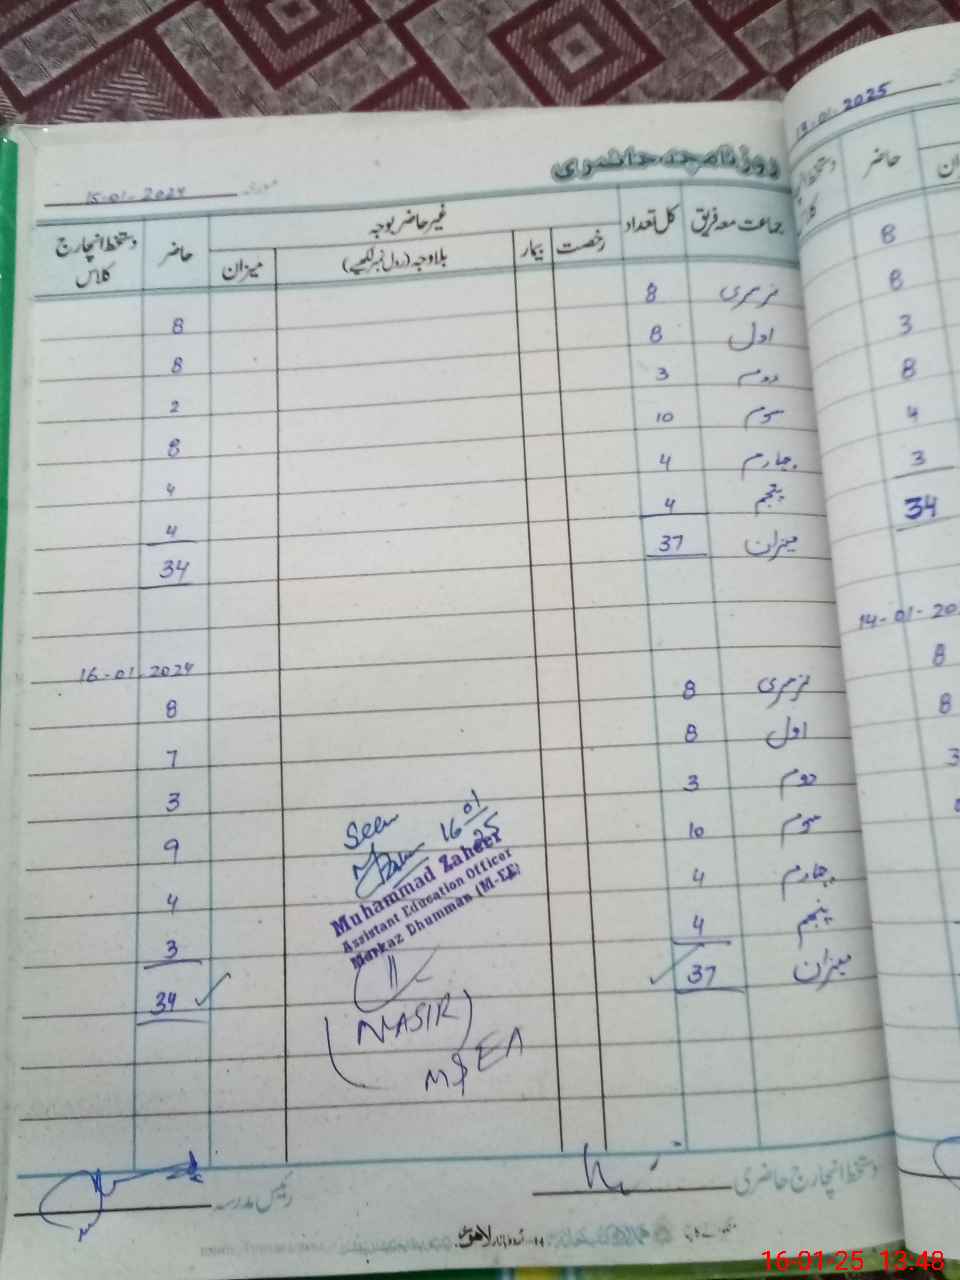 روزنامچہ حاضری
15-01-2024
جماعت معہ فریق کل تعداد غیر حاضر بوجہ حاضر دستخط انچارج کلاس
رخصت بیمار بلاوجہ (رول نمبر لکھیے) میزان
نرسری 8 8
اول 8 8
دوم 3 2
سوم 10 8
چہارم 4 4
پنجم 4 4
میزان 37 34
16-01-2024
نرسری 8 8
اول 8 7
دوم 3 3
سوم 10 9
چہارم 4 4
پنجم 4 3
میزان 37 34
Seen
16/01/25
Muhammad Zaheer
Assistant Education Officer
Markaz Dhumman (M-EE)
(NASIR)
MSEA
دستخط انچارج حاضری
رئیس مدرسہ
لاہور
13-01-2025
دستخط حاضر
8
8
3
8
4
3
34
14-01-20
8
8
3
16-01-25 13:48